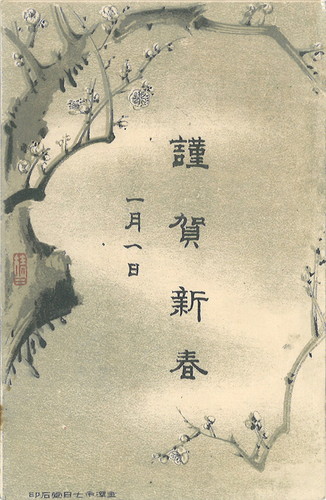 謹賀新春
一月一日